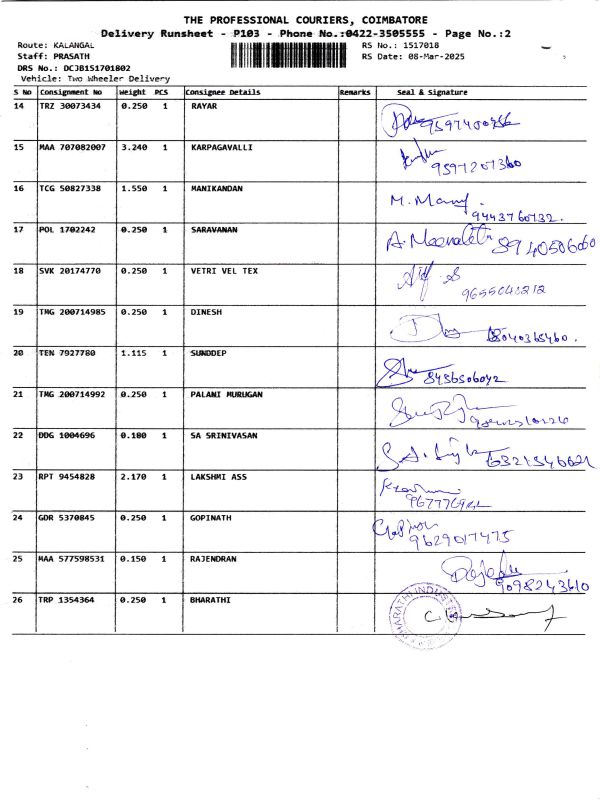 THE PROFESSIONAL COURIERS, COIMBATORE
Delivery Runsheet - P103 - Phone No.:0422-3505555 - Page No.:2
Route: KALANGAL RS No.: 1517018
Staff: PRASATH RS Date: 08-Mar-2025
DRS No.: DCJB151701802
Vehicle: Two Wheeler Delivery
S No Consignment No Weight PCS Consignee Details Remarks Seal & Signature
14 TRZ 30073434 0.250 1 RAYAR
15 MAA 707082007 3.240 1 KARPAGAVALLI
9597207360
16 TCG 50827338 1.550 1 MANIKANDAN
9443760732.
17 POL 1702242 0.250 1 SARAVANAN
18 SVK 20174770 0.250 1 VETRI VEL TEX
19 TMG 200714985 0.250 1 DINESH
20 TEN 7927780 1.115 1 SUNDDEP
8456506042
21 TMG 200714992 0.250 1 PALANI MURUGAN
22 DDG 1004696 0.100 1 SA SRINIVASAN
6321546621
23 RPT 9454828 2.170 1 LAKSHMI ASS
24 GDR 5370845 0.250 1 GOPINATH
9629017475
25 MAA 577598531 0.150 1 RAJENDRAN
9098243610
26 TRP 1354364 0.250 1 BHARATHI